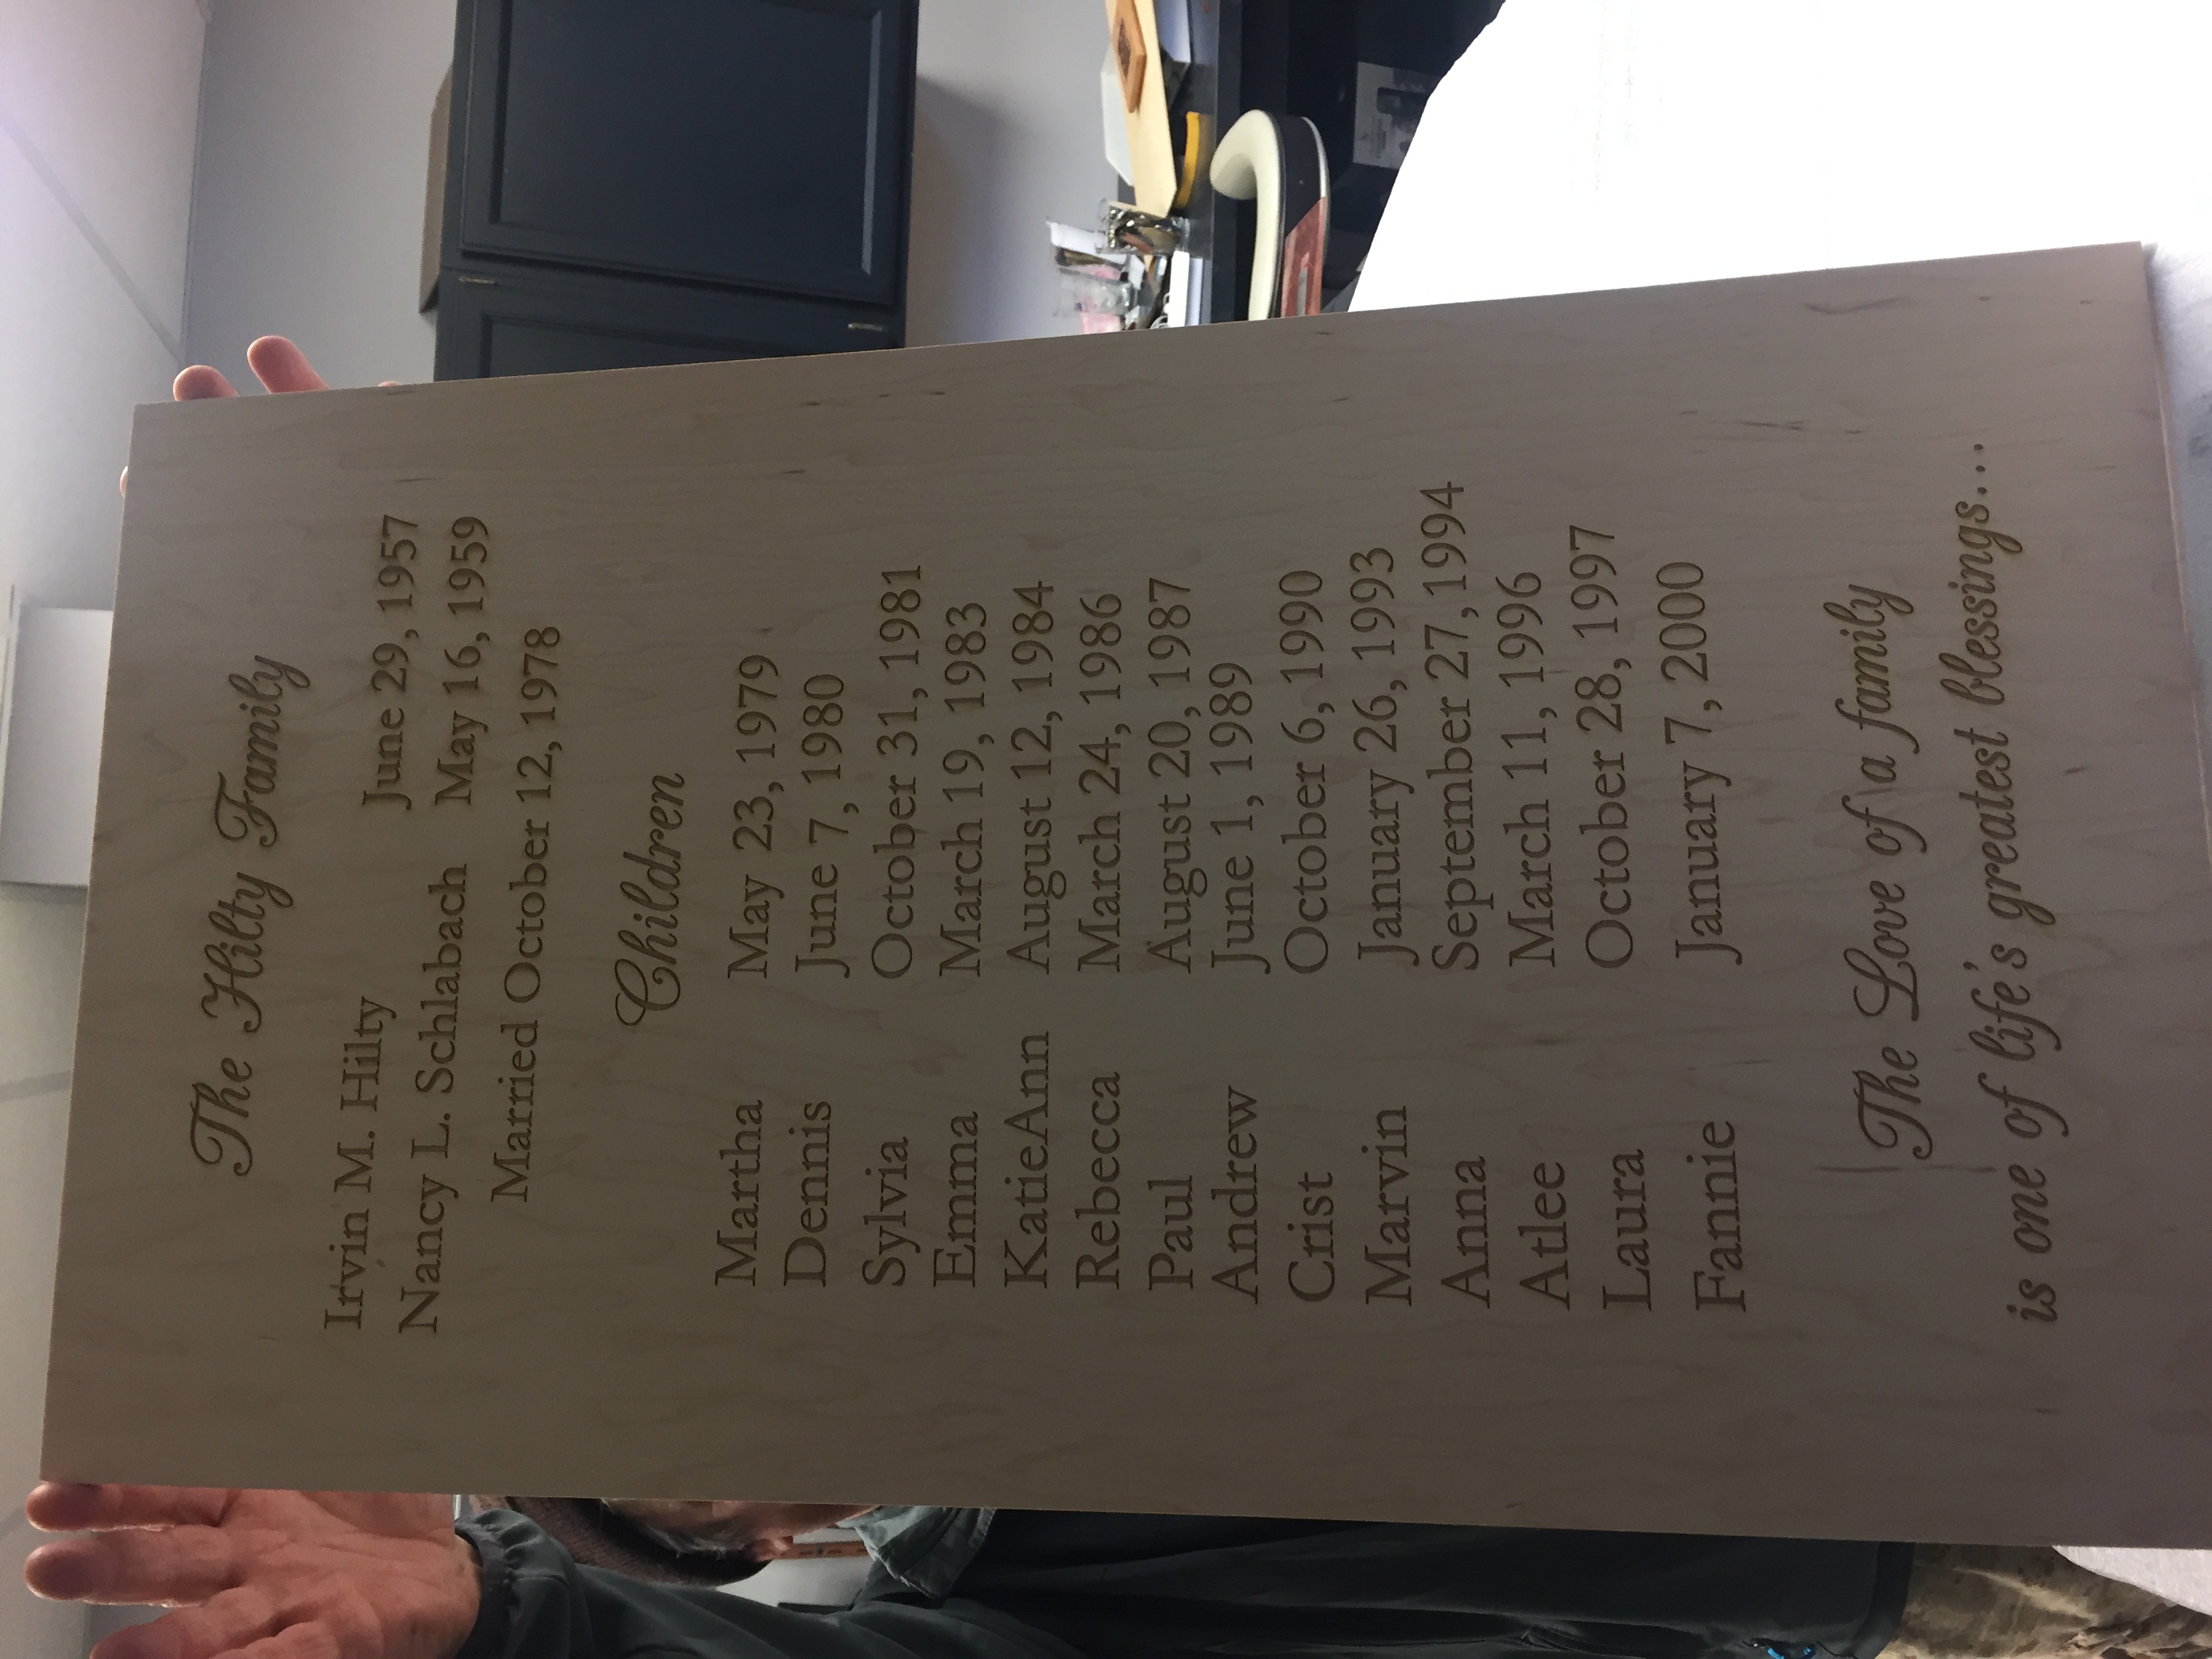 The Hilty Family
Irvin M. Hilty June 29, 1957
Nancy L. Schlabach May 16, 1959
Married October 12, 1978
Children
Martha May 23, 1979
Dennis June 7, 1980
Sylvia October 31, 1981
Emma March 19, 1983
KatieAnn August 12, 1984
Rebecca March 24, 1986
Paul August 20, 1987
Andrew June 1, 1989
Crist October 6, 1990
Marvin January 26, 1993
Anna September 27, 1994
Atlee March 11, 1996
Laura October 28, 1997
Fannie January 7, 2000
The Love of a family
is one of life's greatest blessings...